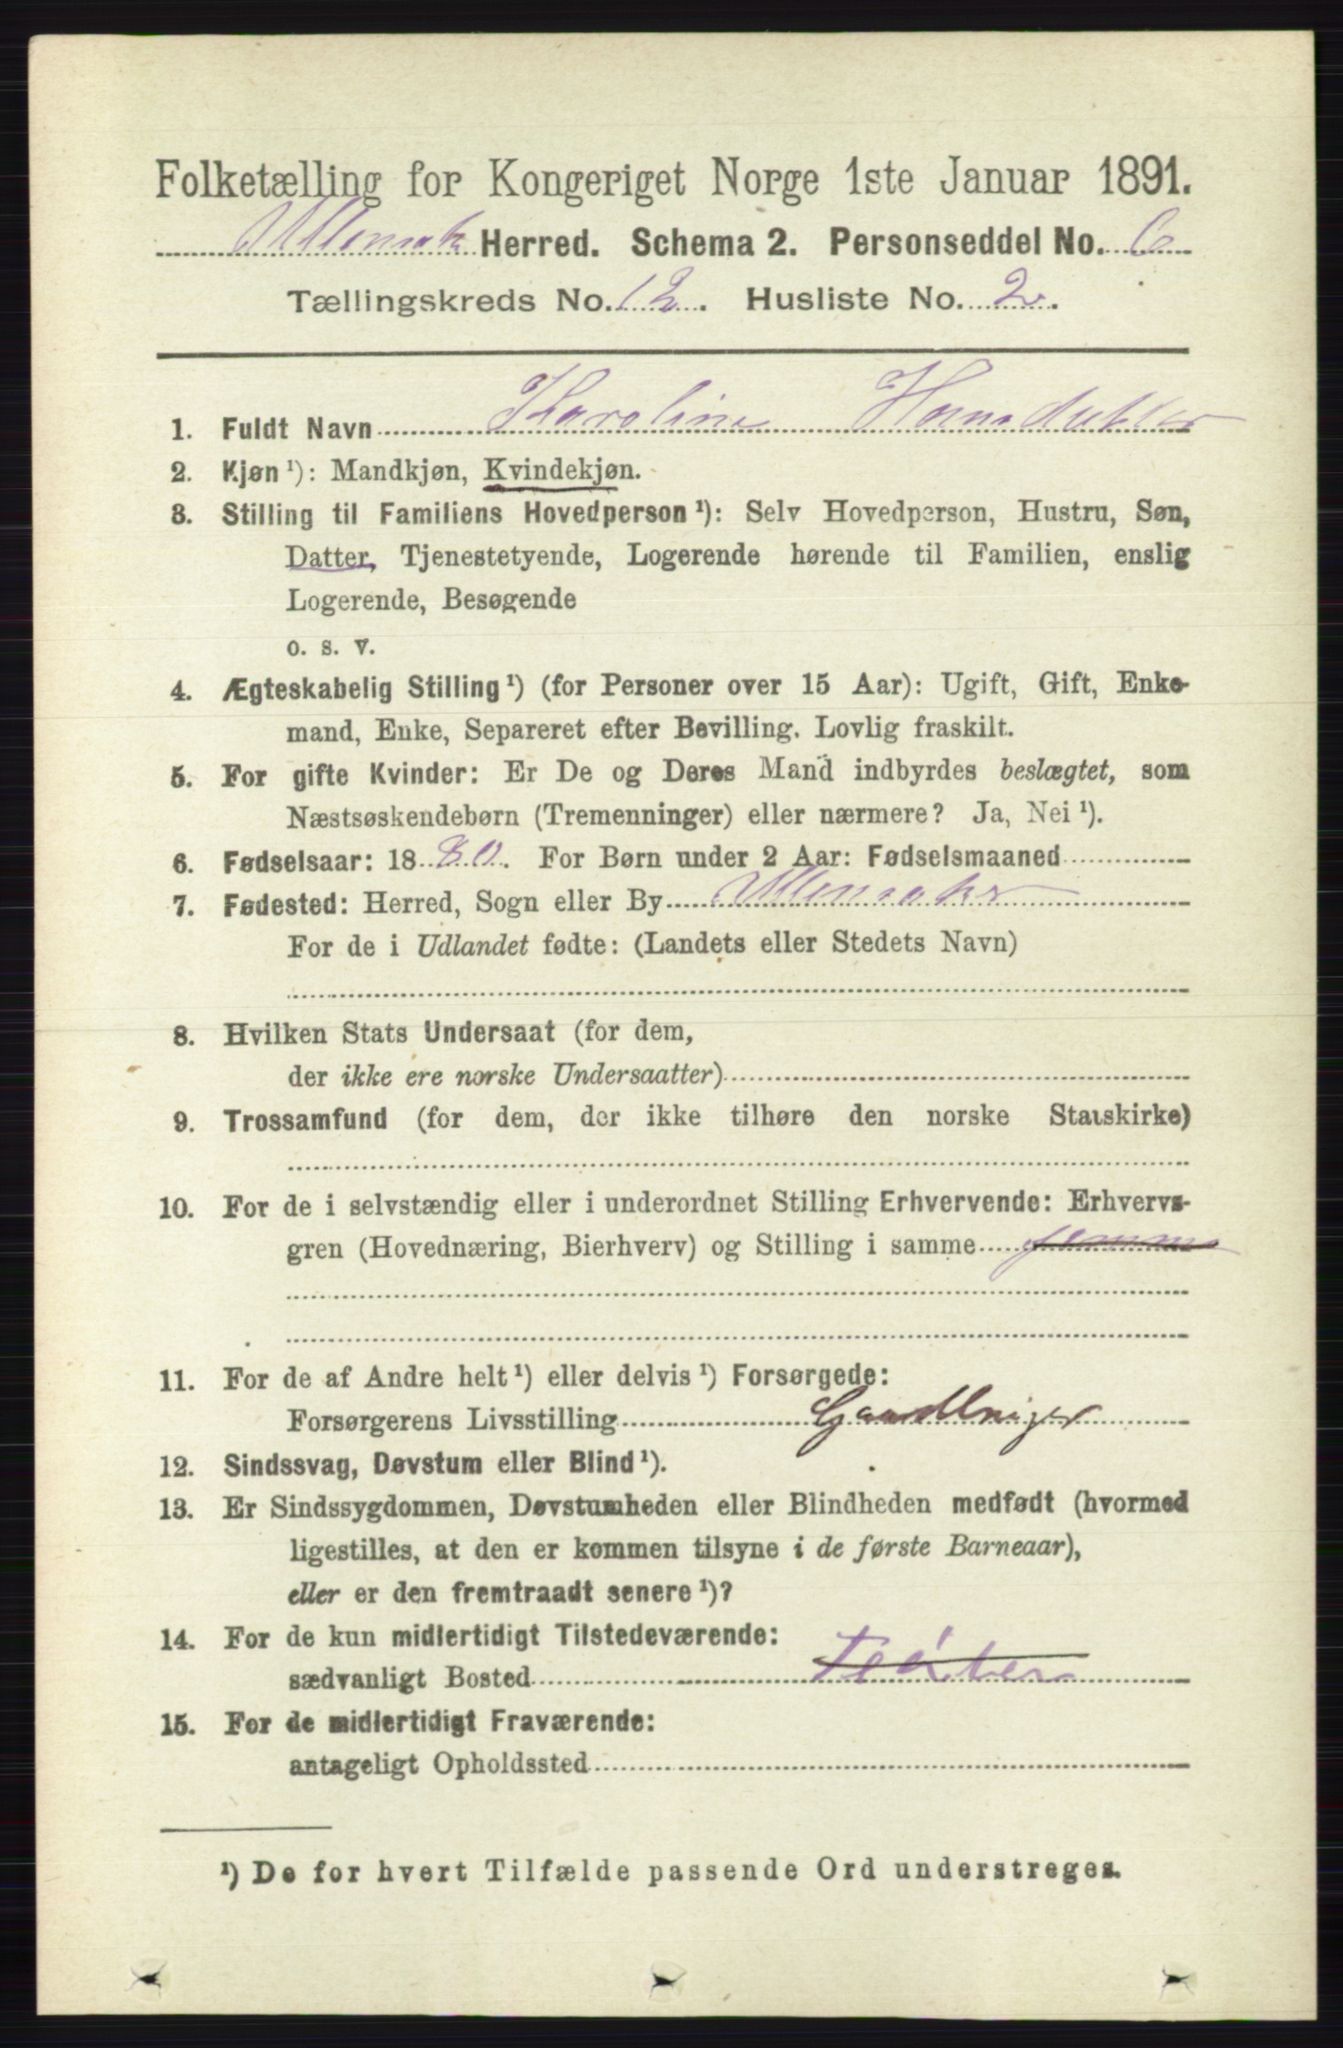 Folketælling for Kongeriget Norge 1ste Januar 1891.
Ullensak Herred. Schema 2. Personseddel No. 6
Tællingskreds No. 12. Husliste No. 2.
1. Fuldt Navn Karoline Hansdatter
2. Kjøn ¹): Mandkjøn, Kvindekjøn.
3. Stilling til Familiens Hovedperson ¹): Selv Hovedperson, Hustru, Søn,
Datter, Tjenestetyende, Logerende hørende til Familien, enslig
Logerende, Besøgende
o. s. v.
4. Ægteskabelig Stilling ¹) (for Personer over 15 Aar): Ugift, Gift, Enke-
mand, Enke, Separeret efter Bevilling. Lovlig fraskilt.
5. For gifte Kvinder: Er De og Deres Mand indbyrdes beslægtet, som
Næstsøskendebørn (Tremenninger) eller nærmere? Ja, Nei ¹).
6. Fødselsaar: 1880. For Børn under 2 Aar: Fødselsmaaned
7. Fødested: Herred, Sogn eller By Ullensaker
For de i Udlandet fødte: (Landets eller Stedets Navn)
8. Hvilken Stats Undersaat (for dem,
der ikke ere norske Undersaatter)
9. Trossamfund (for dem, der ikke tilhøre den norske Statskirke)
10. For de i selvstændig eller i underordnet Stilling Erhvervende: Erhvervs-
gren (Hovednæring, Bierhverv) og Stilling i samme
11. For de af Andre helt ¹) eller delvis ¹) Forsørgede:
Forsørgerens Livsstilling
12. Sindssvag, Døvstum eller Blind ¹).
13. Er Sindssygdommen, Døvstumheden eller Blindheden medfødt (hvormed
ligestilles, at den er kommen tilsyne i de første Barneaar),
eller er den fremtraadt senere ¹)?
14. For de kun midlertidigt Tilstedeværende:
sædvanligt Bosted
15. For de midlertidigt Fraværende:
antageligt Opholdssted
¹) De for hvert Tilfælde passende Ord understreges.